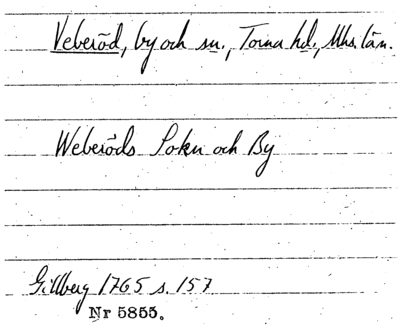 Veberöd, by och sn., Torna hd., Mhs. län.
Weberöds Sokn och By
Gillberg 1765 s. 157
Nr 5855.